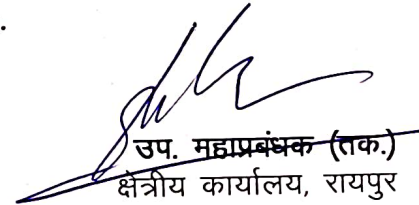 उप. महाप्रबंधक (तक.)
क्षेत्रीय कार्यालय, रायपुर